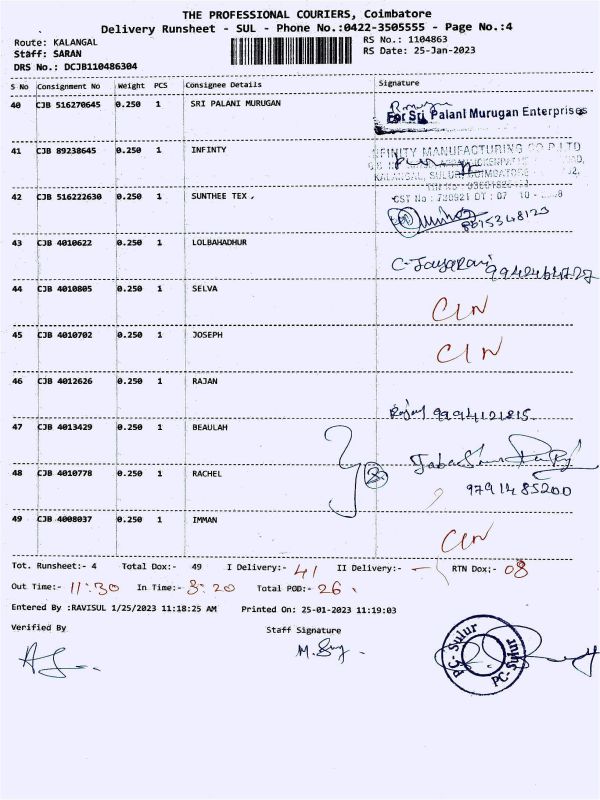 THE PROFESSIONAL COURIERS, Coimbatore
Delivery Runsheet - SUL - Phone No.:0422-3505555 - Page No.:4
Route: KALANGAL RS No.: 1104863
Staff: SARAN RS Date: 25-Jan-2023
DRS No.: DCJB110486304
S No Consignment No Weight PCS Consignee Details Signature
40 CJB 516270645 0.250 1 SRI PALANI MURUGAN
For Sri Palani Murugan Enterprises
41 CJB 89238645 0.250 1 INFINTY
FINITY MANUFACTURING CO P LTD
KALANGAL, SULUR, COIMBATORE
42 CJB 516222630 0.250 1 SUNTHEE TEX .
CST No : 780921 DT : 07 10
43 CJB 4010622 0.250 1 LOLBAHADHUR
C. Jayarani
44 CJB 4010805 0.250 1 SELVA
CLN
45 CJB 4010702 0.250 1 JOSEPH
CLN
46 CJB 4012626 0.250 1 RAJAN
Rajan 9994121815
47 CJB 4013429 0.250 1 BEAULAH
48 CJB 4010778 0.250 1 RACHEL
2
9791485200
49 CJB 4008037 0.250 1 IMMAN
CLN
Tot. Runsheet:- 4 Total Dox:- 49 I Delivery:- 41 II Delivery:- - RTN Dox:- 08
Out Time:- 11:30 In Time:- 3:20 Total POD:- 26.
Entered By :RAVISUL 1/25/2023 11:18:25 AM Printed On: 25-01-2023 11:19:03
Verified By Staff Signature
PC- Sulur
PC- Sulur